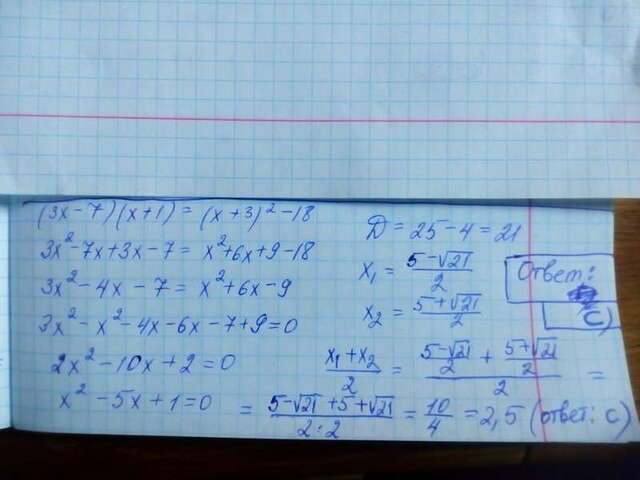 (3x-7)(x+1) = (x+3)²-18
3x²-7x+3x-7 = x²+6x+9-18
3x²-4x-7 = x²+6x-9
3x²-x²-4x-6x-7+9=0
2x²-10x+2=0
x²-5x+1=0
D = 25-4=21
x₁ = (5-√21)/2
x₂ = (5+√21)/2
(x₁+x₂)/2 = ((5-√21)/2 + (5+√21)/2)/2 =
= (5-√21+5+√21)/(2·2) = 10/4 = 2,5 (ответ: С)
Ответ:
С)